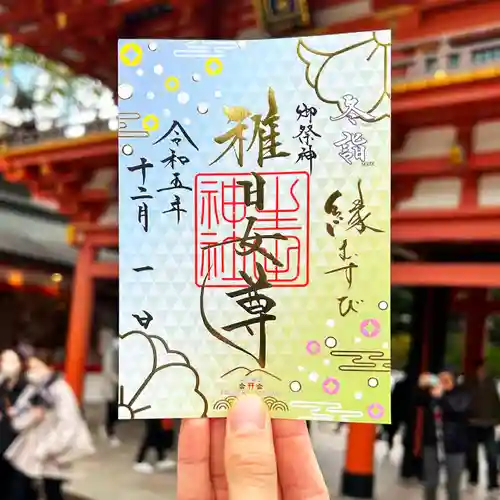 冬詣
縁むすび
御祭神
稚日女尊
生田神社
令和五年
十二月一日